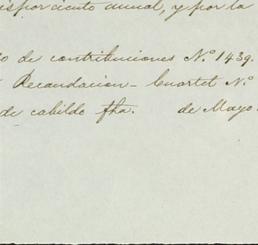 por ciento anual, y por la
o de contribuciones N.º 1439.
Recaudacion - Cuartel N.º
de cabildo fha. de Mayo